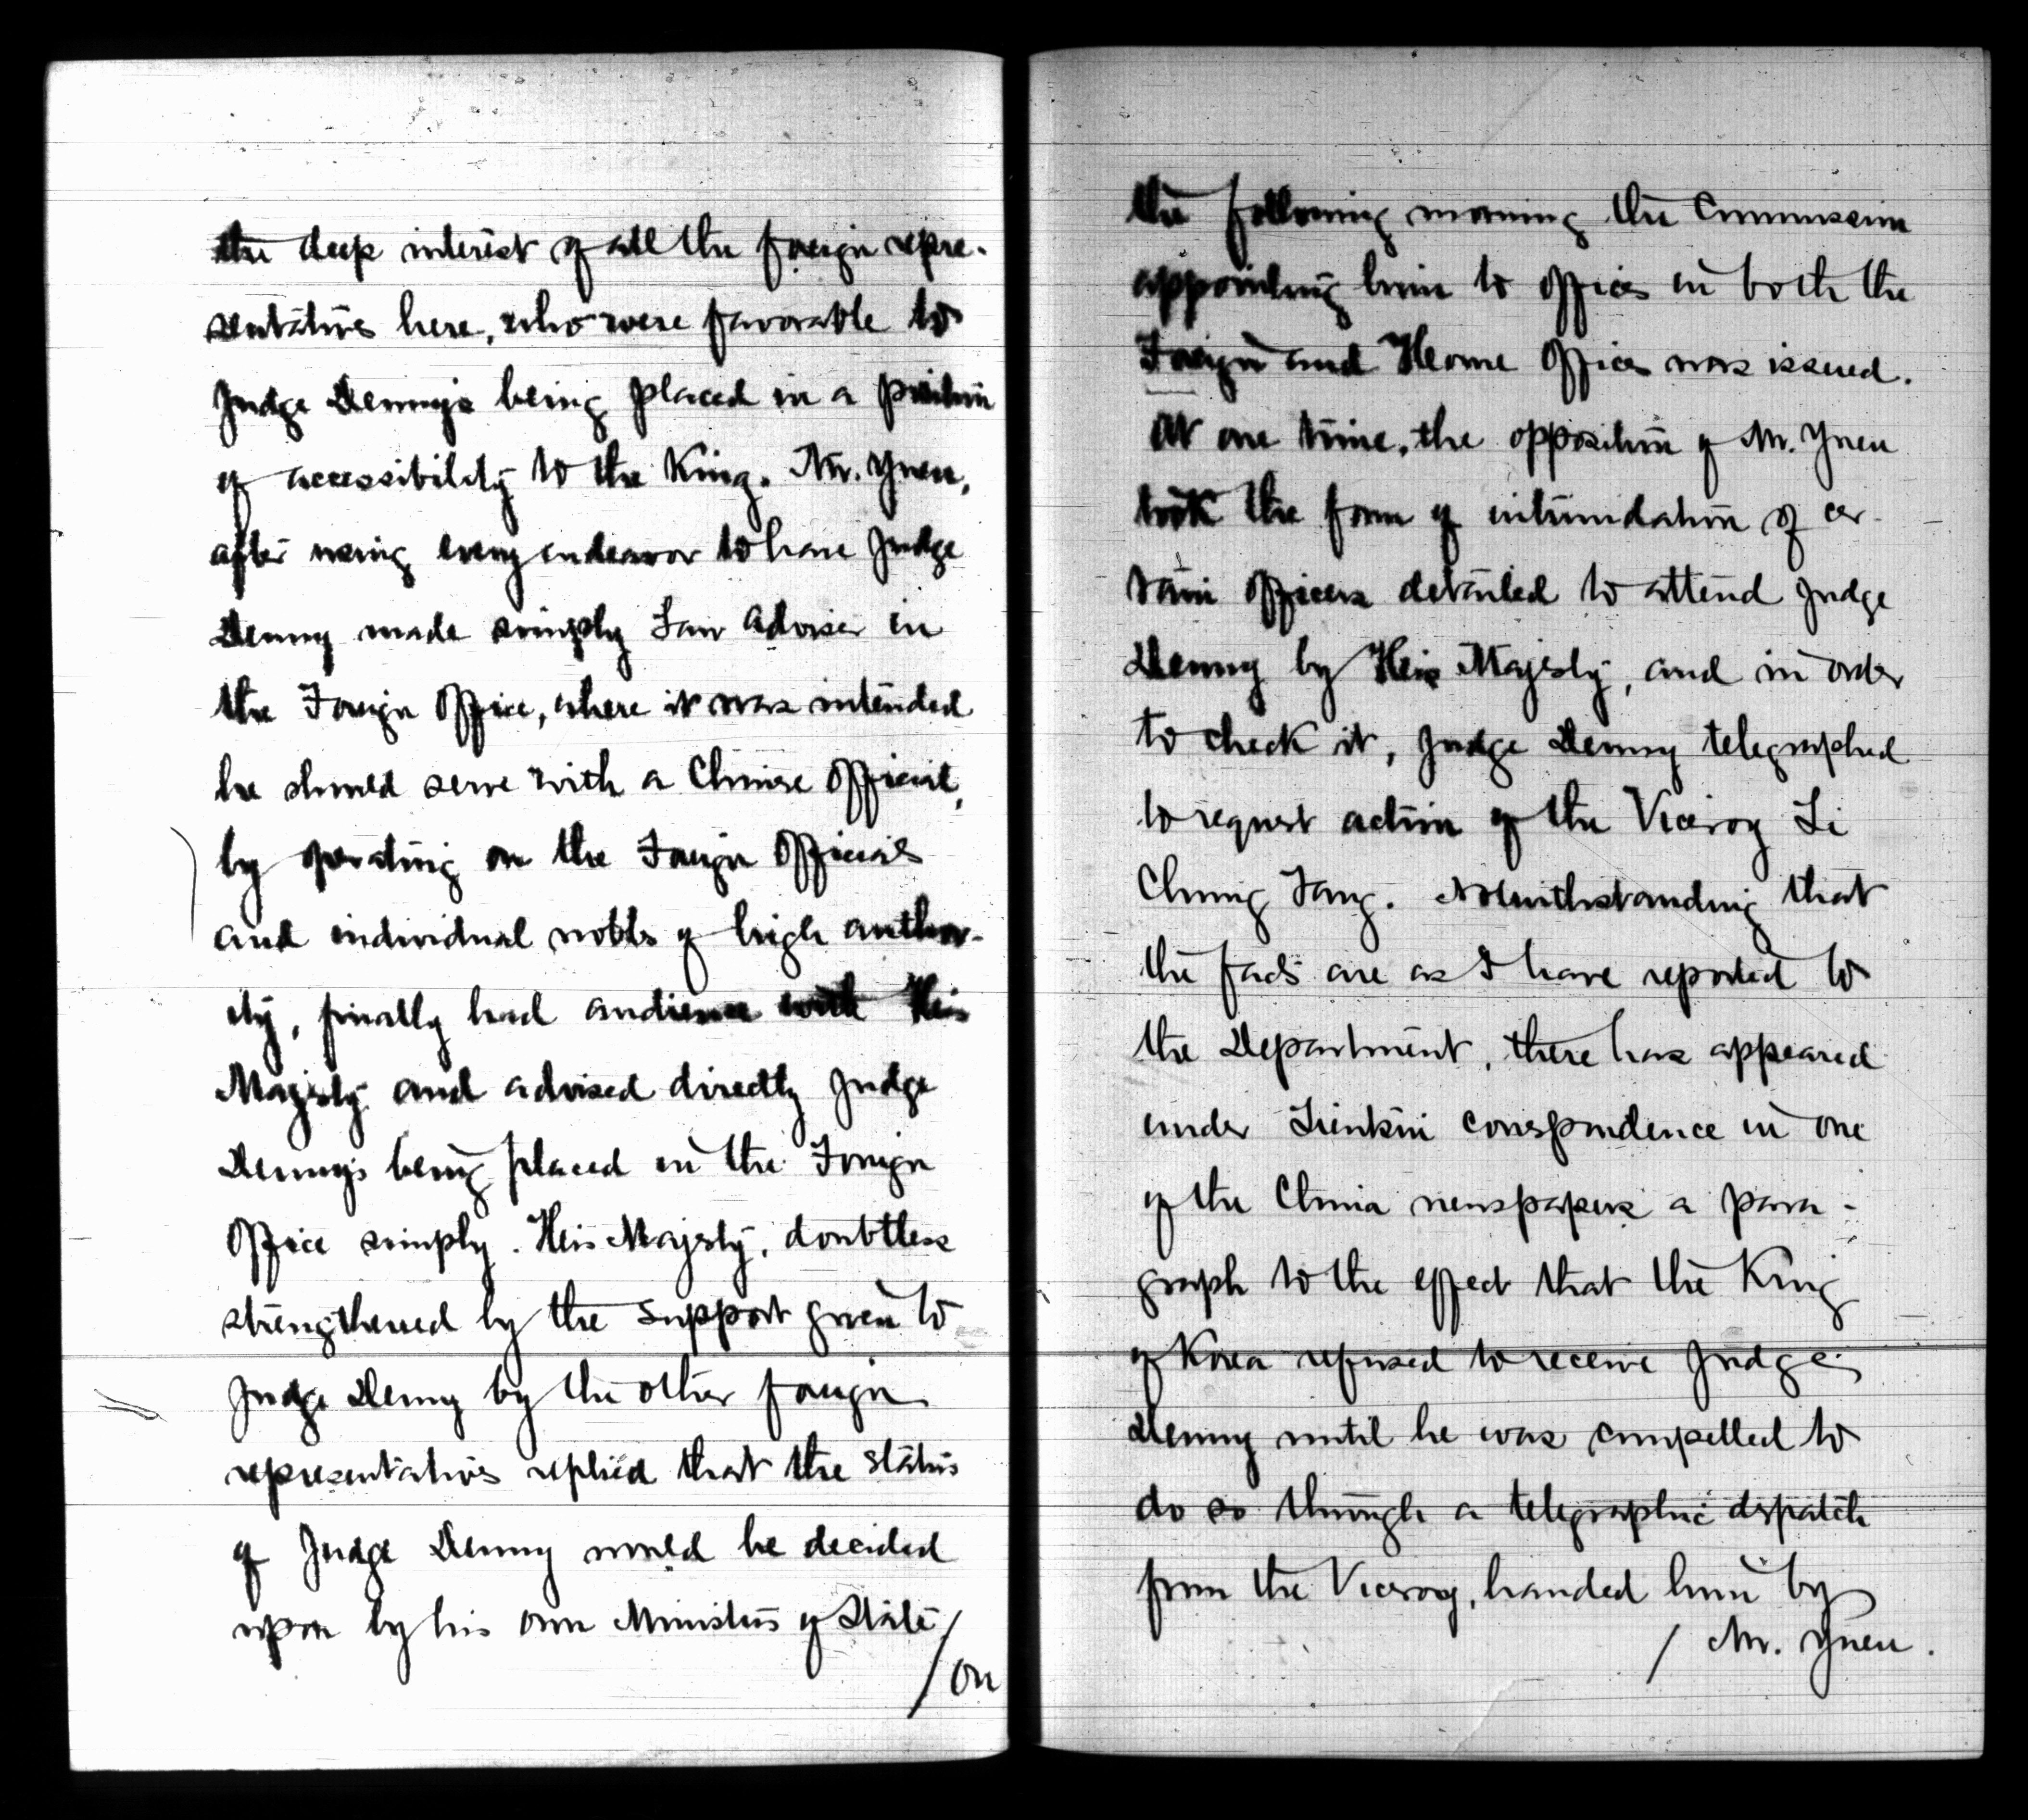 the deep interest of all the foreign repre-
sentatives here, who were favorable to
Judge Denny's being placed in a position
of accessibility to the King. Mr. Yuen,
after using every endeavor to have Judge
Denny made simply Law Adviser in
the Foreign Office, where it was intended
he should serve with a Chinese Official,
by operating on the Foreign Officials
and individual nobles of high author-
ity, finally had audience with His
Majesty and advised directly Judge
Denny's being placed in the Foreign
Office simply. His Majesty, doubtless
strengthened by the support given to
Judge Denny by the other foreign
representatives replied that the status
of Judge Denny would be decided
upon by his own Ministers of State.
/On
the following morning the Commission
appointing him to offices in both the
Foreign and Home Offices was issued.
At one time, the opposition of Mr. Yuen
took the form of intimidation of cer-
tain officers detailed to attend Judge
Denny by His Majesty, and in order
to check it, Judge Denny telegraphed
to request action of the Viceroy Li
Chung Tang. Notwithstanding that
the facts are as I have reported to
the Department, there has appeared
under Tientsin correspondence in one
of the China newspapers a para-
graph to the effect that the King
of Korea refused to receive Judge
Denny until he was compelled to
do so through a telegraphic dispatch
from the Viceroy, handed him by
/ Mr. Yuen.